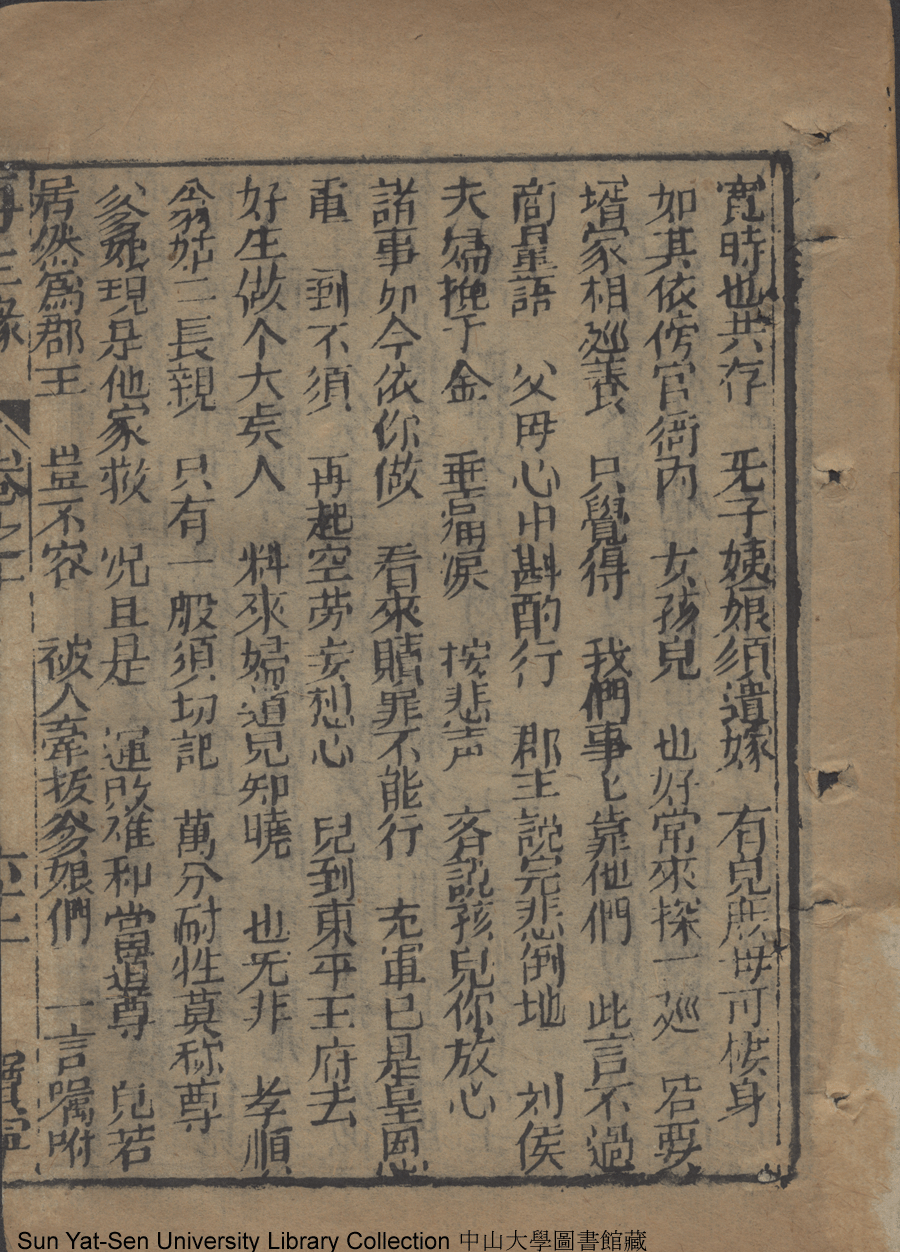 寬時也共存　无子姨娘須遣嫁　有兒庶母可棲身
如其依傍官衙內　女孩兒　也好常來探一廵　若要
壻家相廵養　只覺得　我們事匕靠他們　此言不過
商量語　父母心中斟酌行　郡主說完悲倒地　刘侯
夫婦挽于金　垂痛淚　按悲声　斉說孩兒你放心
諸事如今依你做　看來贖罪不能行　充軍已是皇恩
重　到不須　再起空劳妄想心　兒到東平王府去
好生做个大矣人　料來婦道兒知曉　也无非　孝順
翁姑二長親　只有一般須切記　萬分耐性莫称尊
翁姑現是他家救　况且是　運敗难和當道尊　兒若
居然爲郡王　豈不容　被人牽扳爹娘們　一言嘱咐
再生緣　卷之十　六十二　寶寧
Sun Yat-Sen University Library Collection 中山大學圖書館藏